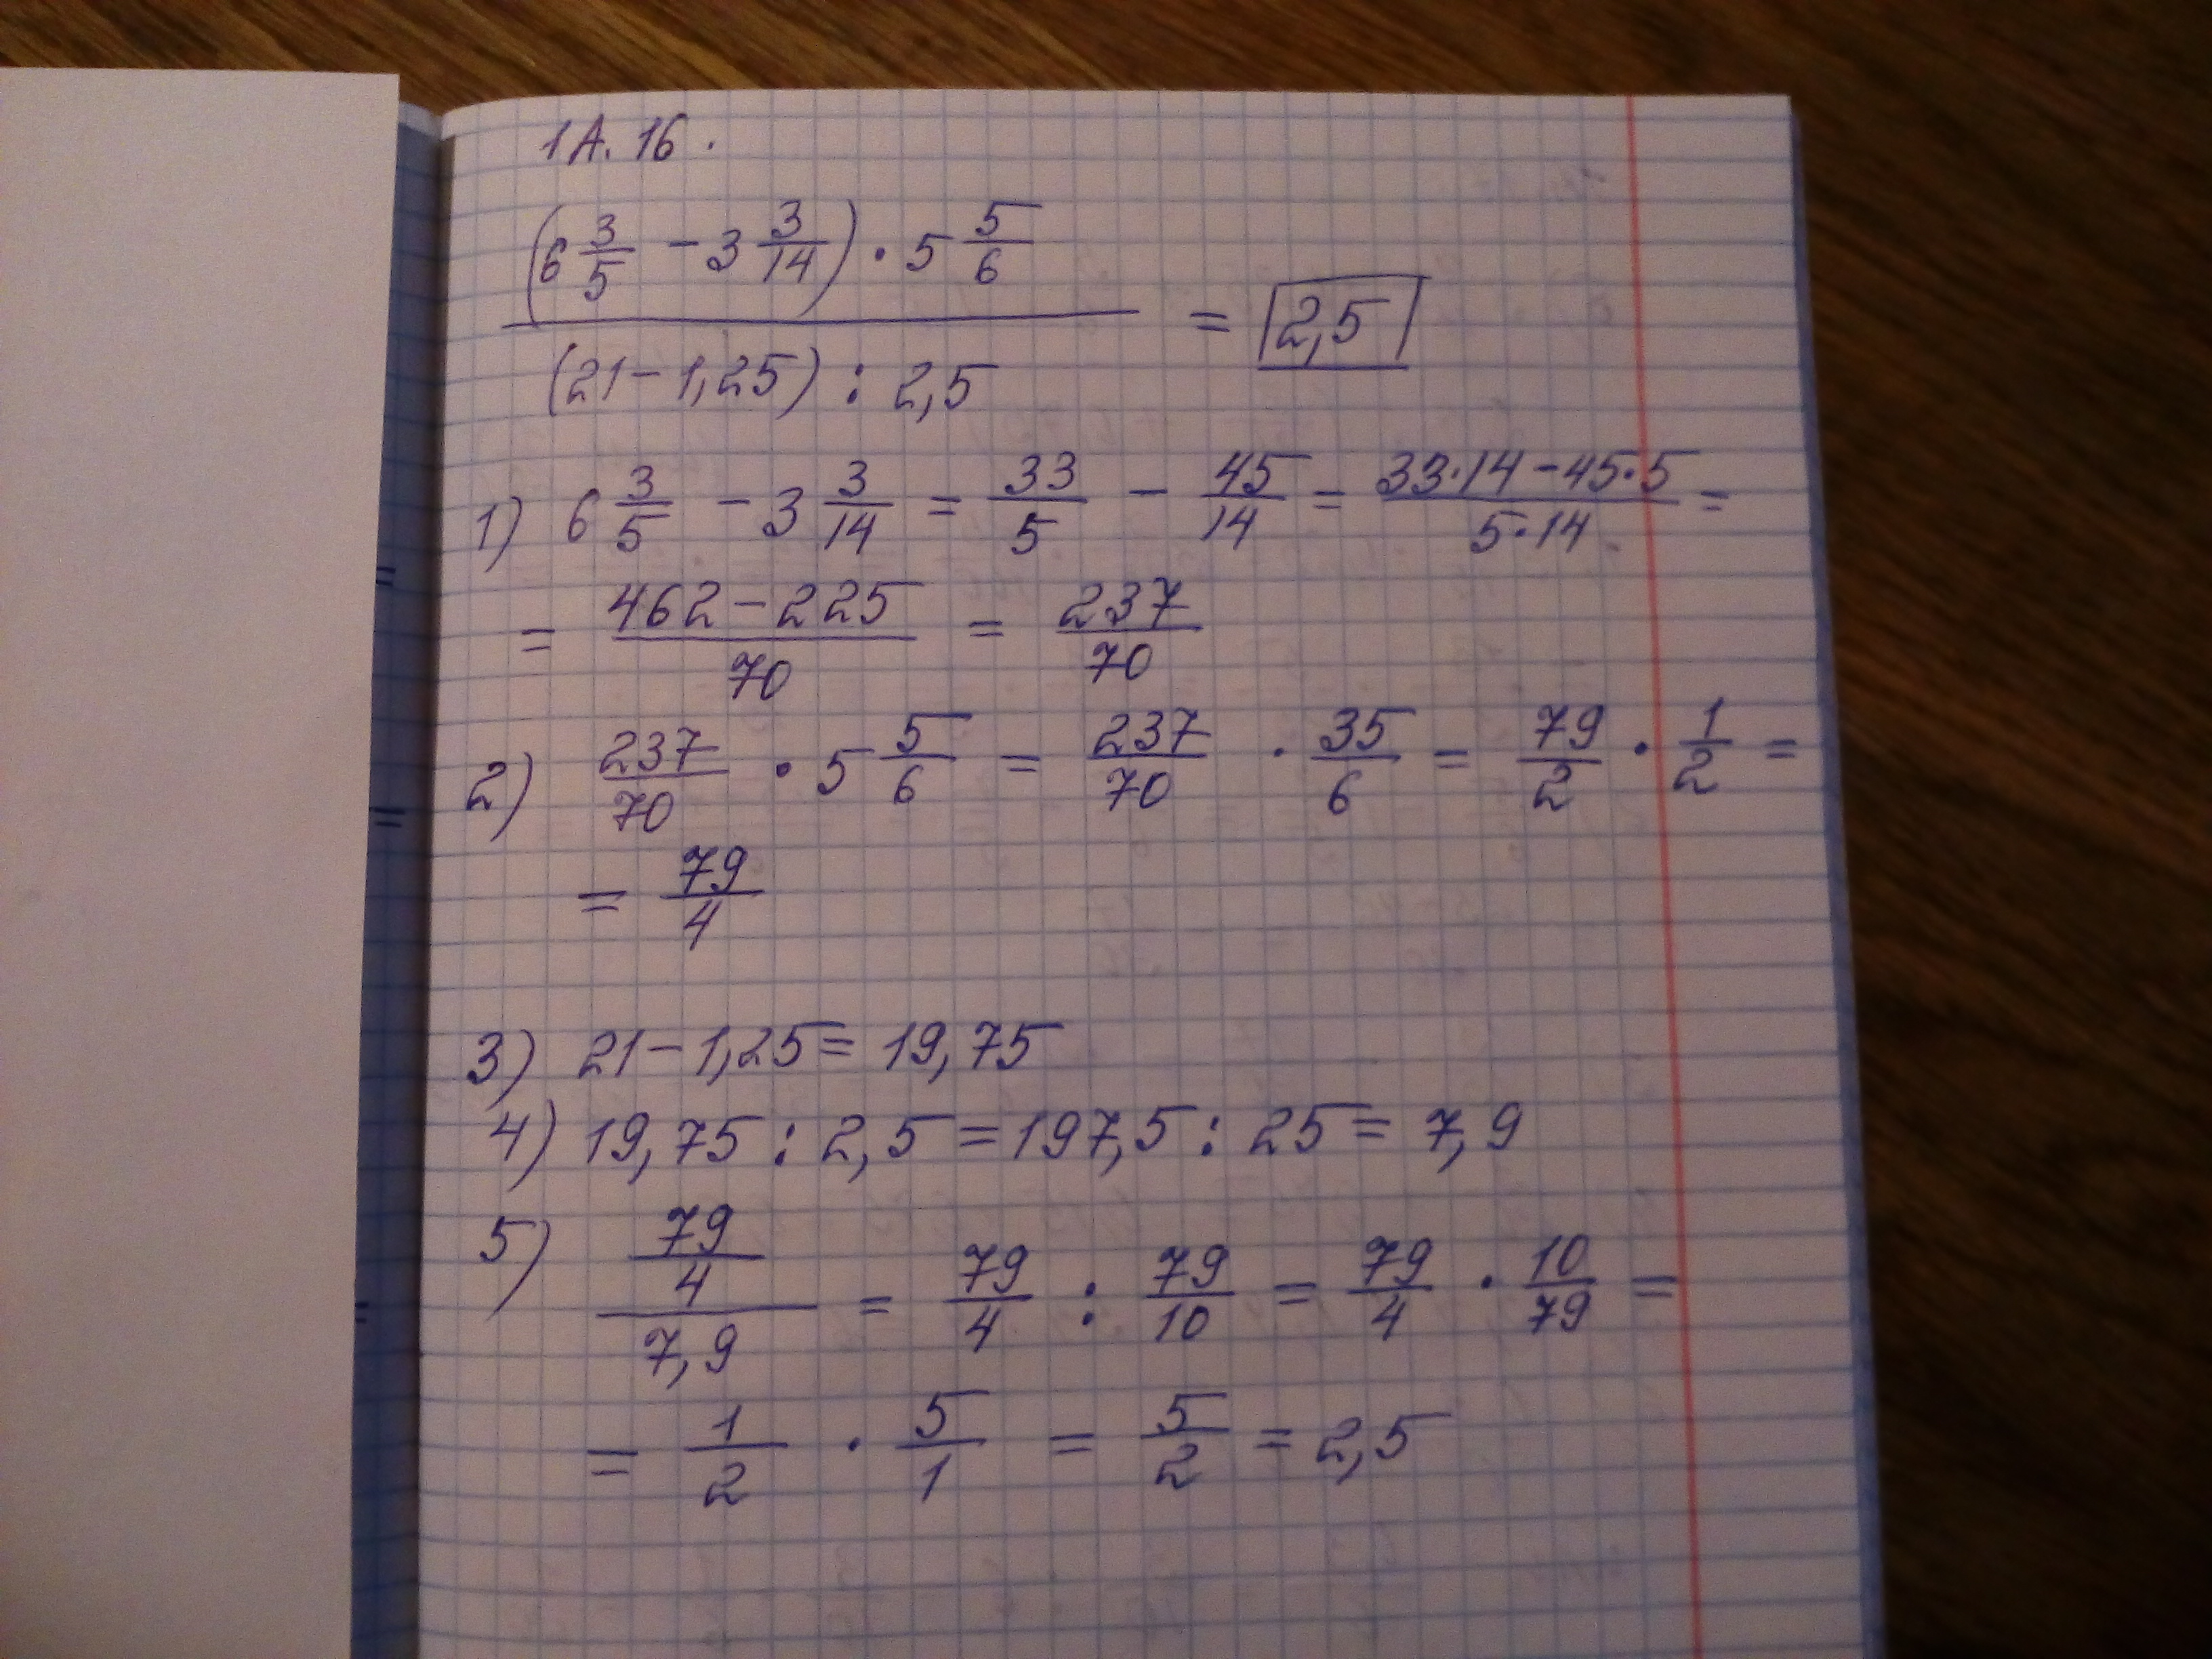 1А. 16.
(6 3/5 - 3 3/14) · 5 5/6
= 2,5
(21 - 1,25) : 2,5
1) 6 3/5 - 3 3/14 = 33/5 - 45/14 = (33·14 - 45·5)/(5·14) =
= (462 - 225)/70 = 237/70
2) 237/70 · 5 5/6 = 237/70 · 35/6 = 79/2 · 1/2 =
= 79/4
3) 21 - 1,25 = 19,75
4) 19,75 : 2,5 = 197,5 : 25 = 7,9
5) (79/4)/7,9 = 79/4 : 79/10 = 79/4 · 10/79 =
= 1/2 · 5/1 = 5/2 = 2,5